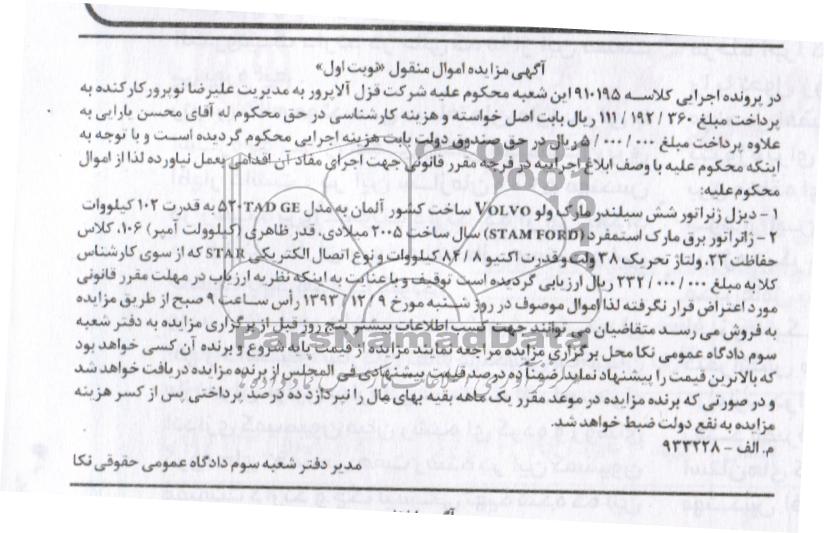 آگهی مزایده اموال منقول «نوبت اول»
در پرونده اجرایی کلاسه ۹۱۰۱۹۵ این شعبه محکوم علیه شرکت قزل آلاپرور به مدیریت علیرضا نوپرور کارکنده به
پرداخت مبلغ ۳۶۰ / ۱۹۲ / ۱۱۱ ریال بابت اصل خواسته و هزینه کارشناسی در حق محکوم له آقای محسن یارایی به
علاوه پرداخت مبلغ ۰۰۰ / ۰۰۰ / ۵ ریال در حق صندوق دولت بابت هزینه اجرایی محکوم گردیده است و با توجه به
اینکه محکوم علیه با وصف ابلاغ اجرائیه در فرجه مقرر قانونی جهت اجرای مفاد آن اقدامی بعمل نیاورده لذا از اموال
محکوم علیه:
۱ - دیزل ژنراتور شش سیلندر مارک ولو VOLVO ساخت کشور آلمان به مدل ۵۲۰TAD GE به قدرت ۱۰۲ کیلووات
۲ - ژانراتور برق مارک استمفرد (STAM FORD) سال ساخت ۲۰۰۵ میلادی، قدر ظاهری (کیلوولت آمپر) ۱۰۶، کلاس
حفاظت ۲۳، ولتاژ تحریک ۳۸ ولت و قدرت اکتیو ۸ / ۸۴ کیلووات و نوع اتصال الکتریکی STAR که از سوی کارشناس
کلا به مبلغ ۰۰۰ / ۰۰۰ / ۲۳۲ ریال ارزیابی گردیده است توقیف و با عنایت به اینکه نظر به ارزیاب در مهلت مقرر قانونی
مورد اعتراض قرار نگرفته لذا اموال موصوف در روز شنبه مورخ ۹ / ۱۲ / ۱۳۹۳ رأس ساعت ۹ صبح از طریق مزایده
به فروش می رسد متقاضیان می توانند جهت کسب اطلاعات بیشتر پنج روز قبل از برگزاری مزایده به دفتر شعبه
سوم دادگاه عمومی نکا محل برگزاری مزایده مراجعه نمایند مزایده از قیمت پایه شروع و برنده آن کسی خواهد بود
که بالاترین قیمت را پیشنهاد نماید ضمناً ده درصد قیمت پیشنهادی فی المجلس از برنده مزایده دریافت خواهد شد
و در صورتی که برنده مزایده در موعد مقرر یک ماهه بقیه بهای مال را نپردازد ده درصد پرداختی پس از کسر هزینه
مزایده به نفع دولت ضبط خواهد شد.
م. الف - ۹۳۳۲۲۸
مدیر دفتر شعبه سوم دادگاه عمومی حقوقی نکا
ParsNamadData